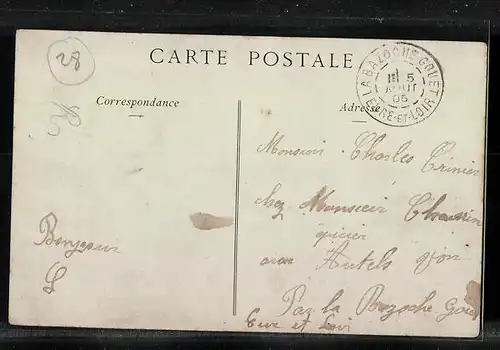 28
CARTE POSTALE
LA BAZOCHE-GOUET
5
AOUT
05
EURE-ET-LOIR
Correspondance
Adresse
Monsieur Charles Crinier
chez Monsieur
épicier
aux Autels
Par la Bazoche Gouet
Eure et Loir
Bonjour
L